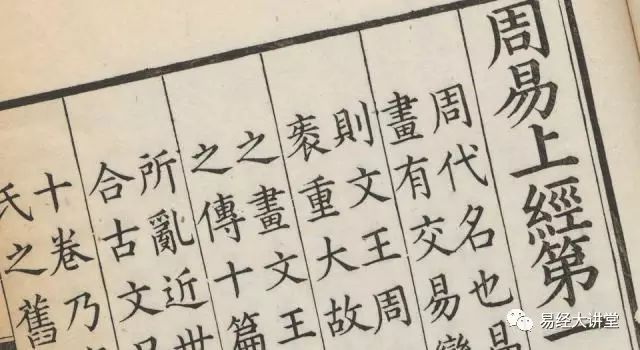 周易上經第一
周代名也
畫有交易變
則文王周
袠重大故
之畫文王
之傳十篇
所亂近世
合古文
十卷乃
氏之舊
易经大讲堂